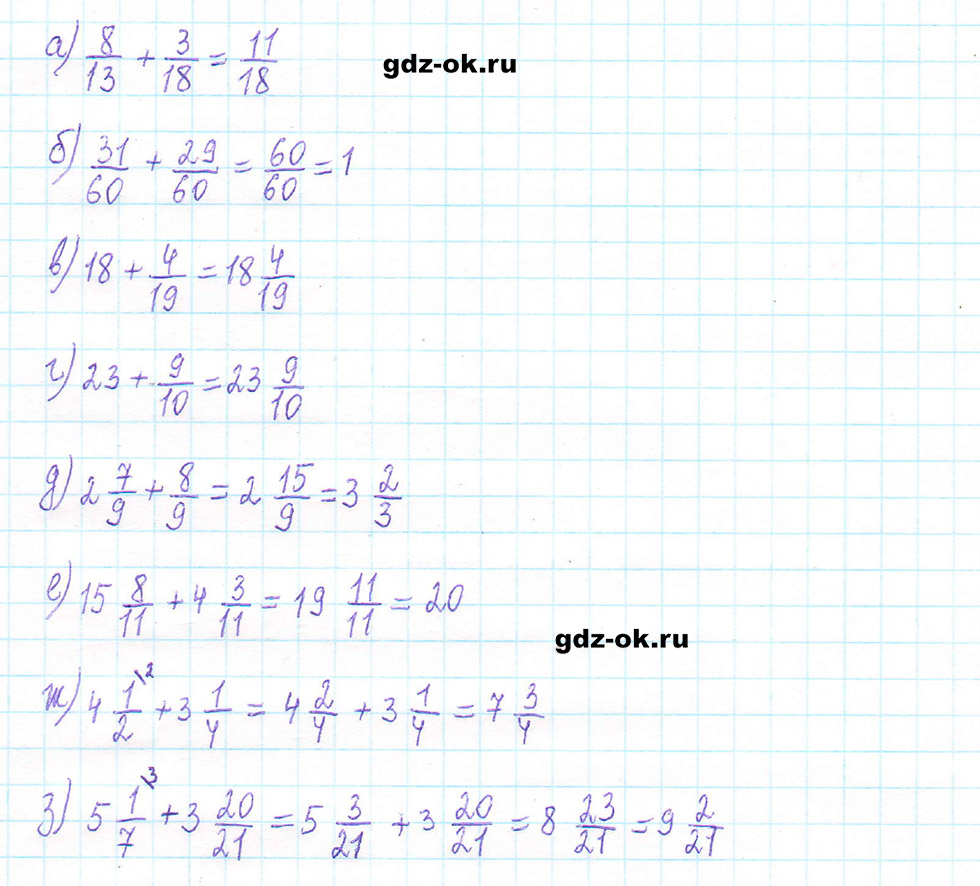 а) 8/13 + 3/18 = 11/18
gdz-ok.ru
б) 31/60 + 29/60 = 60/60 = 1
в) 18 + 4/19 = 18 4/19
г) 23 + 9/10 = 23 9/10
д) 2 7/9 + 8/9 = 2 15/9 = 3 2/3
е) 15 8/11 + 4 3/11 = 19 11/11 = 20
gdz-ok.ru
ж) 4 1/2 \2 + 3 1/4 = 4 2/4 + 3 1/4 = 7 3/4
з) 5 1/7 \3 + 3 20/21 = 5 3/21 + 3 20/21 = 8 23/21 = 9 2/21